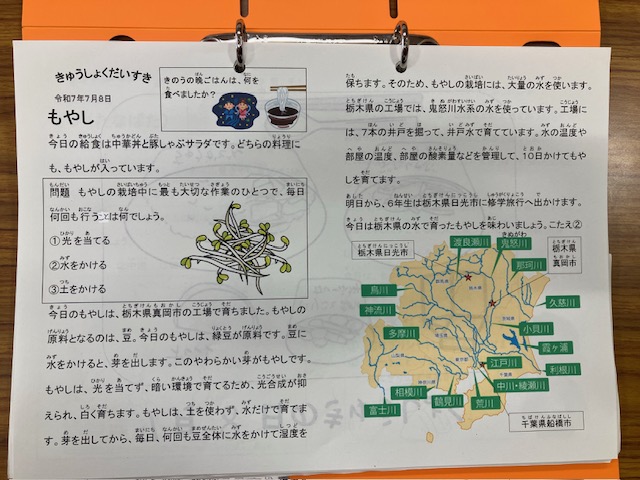 きゅうしょくだいすき
令和7年7月8日
もやし
きのうの晩ごはんは、何を
食べましたか?
今日の給食は中華丼と豚しゃぶサラダです。どちらの料理に
も、もやしが入っています。
問題 もやしの栽培中に最も大切な作業のひとつで、毎日
何回も行うことは何でしょう。
①光を当てる
②水をかける
③土をかける
今日のもやしは、栃木県真岡市の工場で育ちました。もやしの
原料となるのは、豆。今日のもやしは、緑豆が原料です。豆に
水をかけると、芽を出します。このやわらかい芽がもやしです。
もやしは、光を当てず、暗い環境で育てるため、光合成が抑
えられ、白く育ちます。もやしは、土を使わず、水だけで育てま
す。芽を出してから、毎日、何回も豆全体に水をかけて湿度を
保ちます。そのため、もやしの栽培には、大量の水を使います。
栃木県の工場では、鬼怒川水系の水を使っています。工場に
は、7本の井戸を掘って、井戸水で育てています。水の温度や
部屋の温度、部屋の酸素量などを管理して、10日かけてもや
しを育てます。
明日から、6年生は栃木県日光市に修学旅行へ出かけます。
今日は栃木県の水で育ったもやしを味わいましょう。こたえ②
栃木県日光市
渡良瀬川
鬼怒川
栃木県
真岡市
那珂川
烏川
久慈川
神流川
小貝川
多摩川
霞ヶ浦
江戸川
利根川
相模川
中川・綾瀬川
富士川
鶴見川
荒川
千葉県船橋市